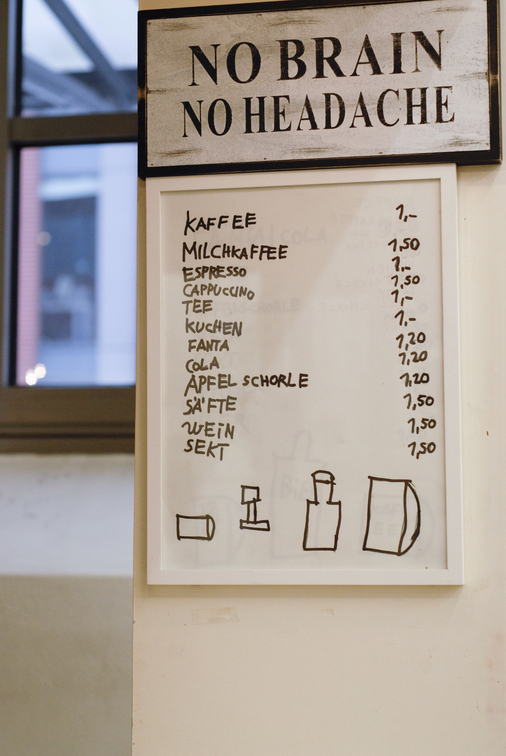 NO BRAIN
NO HEADACHE
KAFFEE 1,-
MILCHKAFFEE 1,50
ESPRESSO 1,-
CAPPUCCINO 1,50
TEE 1,-
KUCHEN 1,-
FANTA 1,20
COLA 1,20
APFELSCHORLE 1,20
SÄFTE 1,50
WEIN 1,50
SEKT 1,50